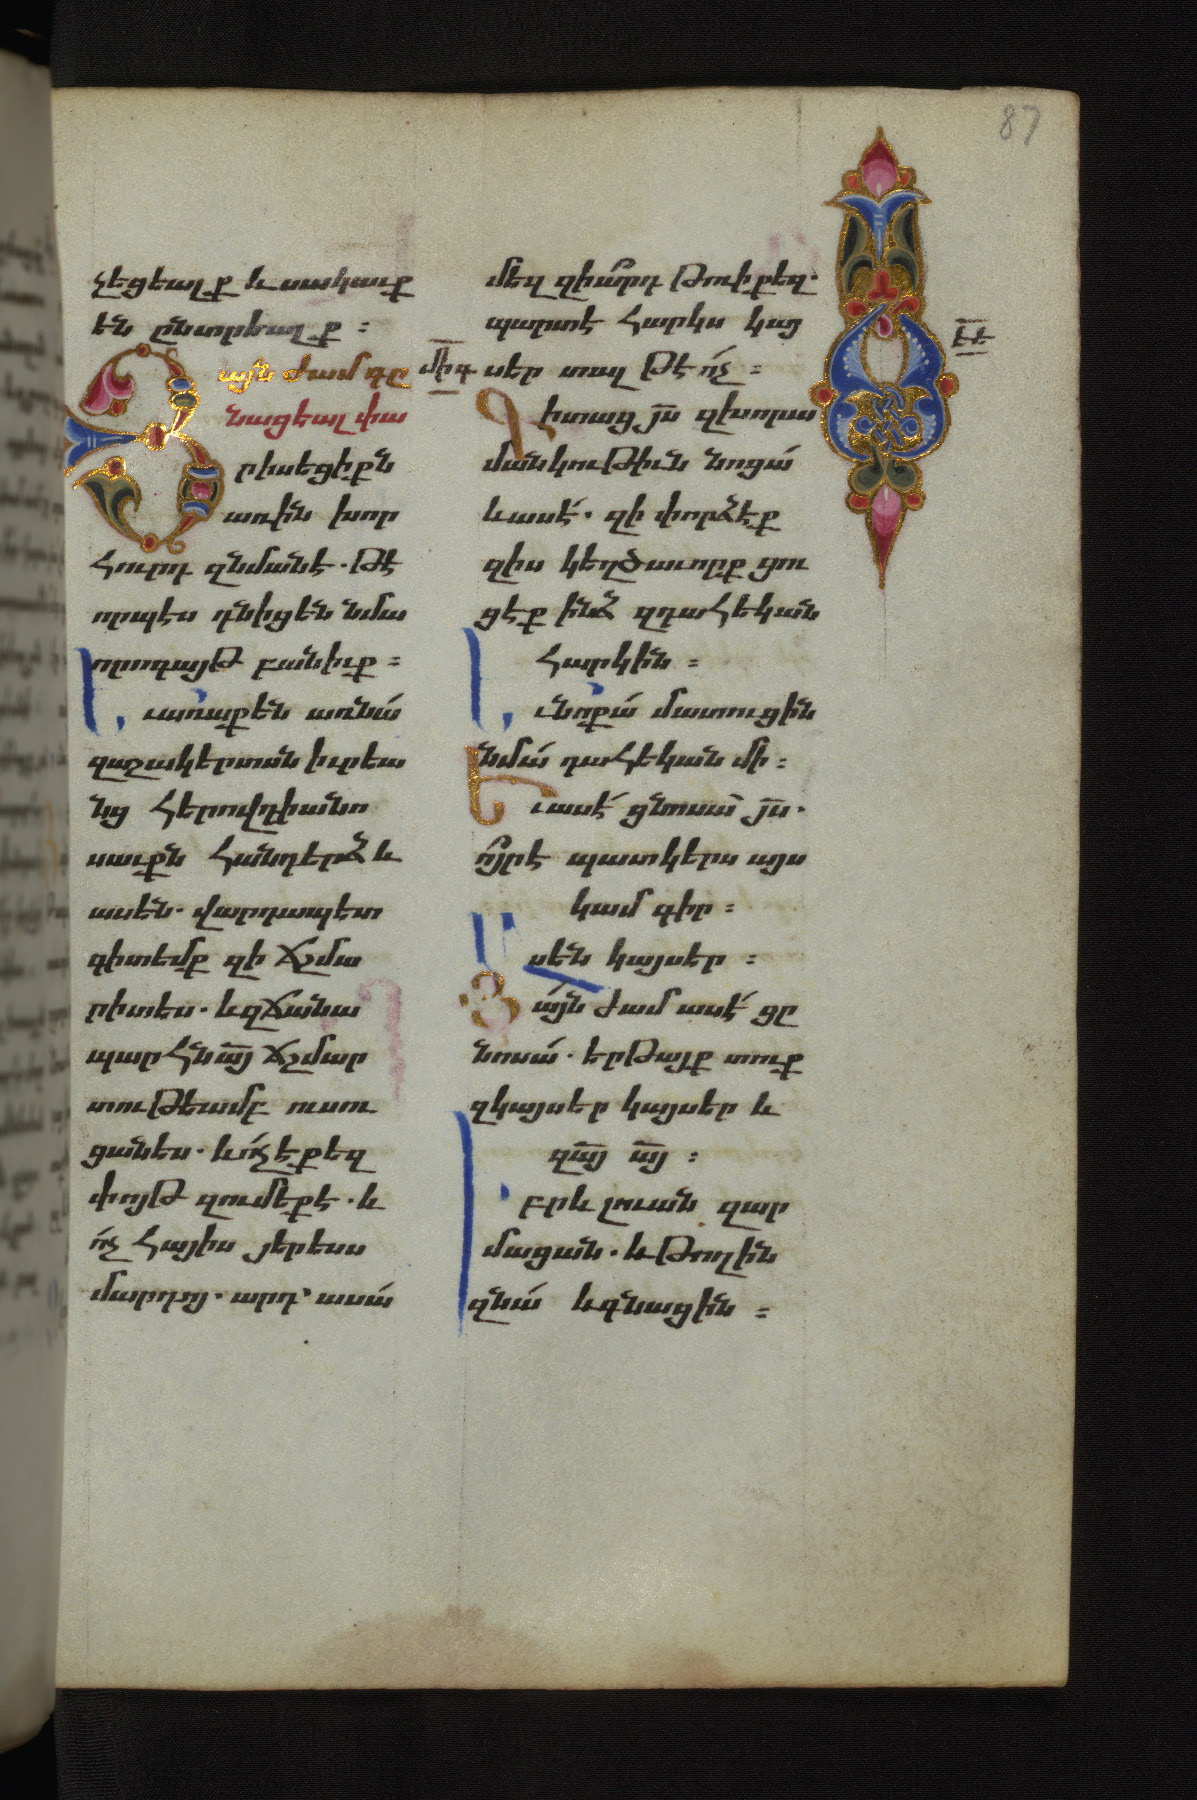 87
չեցեալ ք և սակաւք
են ընտրեալ ք :
Յայն ժամ գը
նացեալ փա
րիսեցիքն
առին խոր
հուրդ զնմանէ . թէ
որպէս դնիցեն նմա
որոգայթ բանիւք :
Եւ առաքեն առնա
զաշակերտսն իւրեա
նց հերովդիանո
սաւքն հանդերձ և
ասեն . վարդապետ
գիտեմք զի ճշմա
րիտ ես . և զճանա
պարհն այ ճշմար
տութեամբ ուսու
ցանես . և ոչ է քեզ
փոյթ զումեքէ . և
ոչ հայիս յերեսս
մարդոյ . արդ՝ ասա
մեզ զիարդ թուի քեզ .
պարտ է հարկս կայ
սեր տալ թէ ոչ :
Գիտաց յս զխորա
մանկութիւն նոցա
և ասէ . զի փորձէք
զիս կեղծաւորք ցու
ցէք ինձ զդահեկան
հարկին :
Եւ նոքա մատուցին
նմա դահեկան մի :
Եւ ասէ ցնոսա յս .
ոյր է պատկերս այս
կամ գիր :
Ասեն կայսեր :
Յայն ժամ ասէ ցը
նոսա . երթայք տուք
զկայսեր կայսեր և
զայ այ :
Իբրև լուան զար
մացան . և թողին
զնա և գնացին :